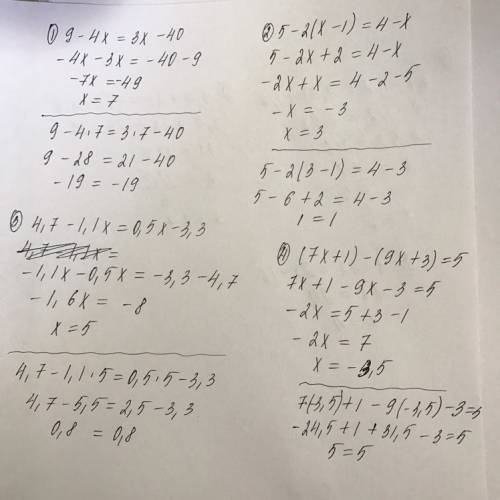 ① 9 - 4x = 3x - 40
- 4x - 3x = - 40 - 9
- 7x = - 49
x = 7
9 - 4 · 7 = 3 · 7 - 40
9 - 28 = 21 - 40
- 19 = - 19
② 5 - 2(x - 1) = 4 - x
5 - 2x + 2 = 4 - x
- 2x + x = 4 - 2 - 5
- x = - 3
x = 3
5 - 2(3 - 1) = 4 - 3
5 - 6 + 2 = 4 - 3
1 = 1
③ 4,7 - 1,1x = 0,5x - 3,3
- 1,1x - 0,5x = - 3,3 - 4,7
- 1,6x = - 8
x = 5
4,7 - 1,1 · 5 = 0,5 · 5 - 3,3
4,7 - 5,5 = 2,5 - 3,3
0,8 = 0,8
④ (7x + 1) - (9x + 3) = 5
7x + 1 - 9x - 3 = 5
- 2x = 5 + 3 - 1
- 2x = 7
x = - 3,5
7(-3,5) + 1 - 9(-3,5) - 3 = 5
- 24,5 + 1 + 31,5 - 3 = 5
5 = 5